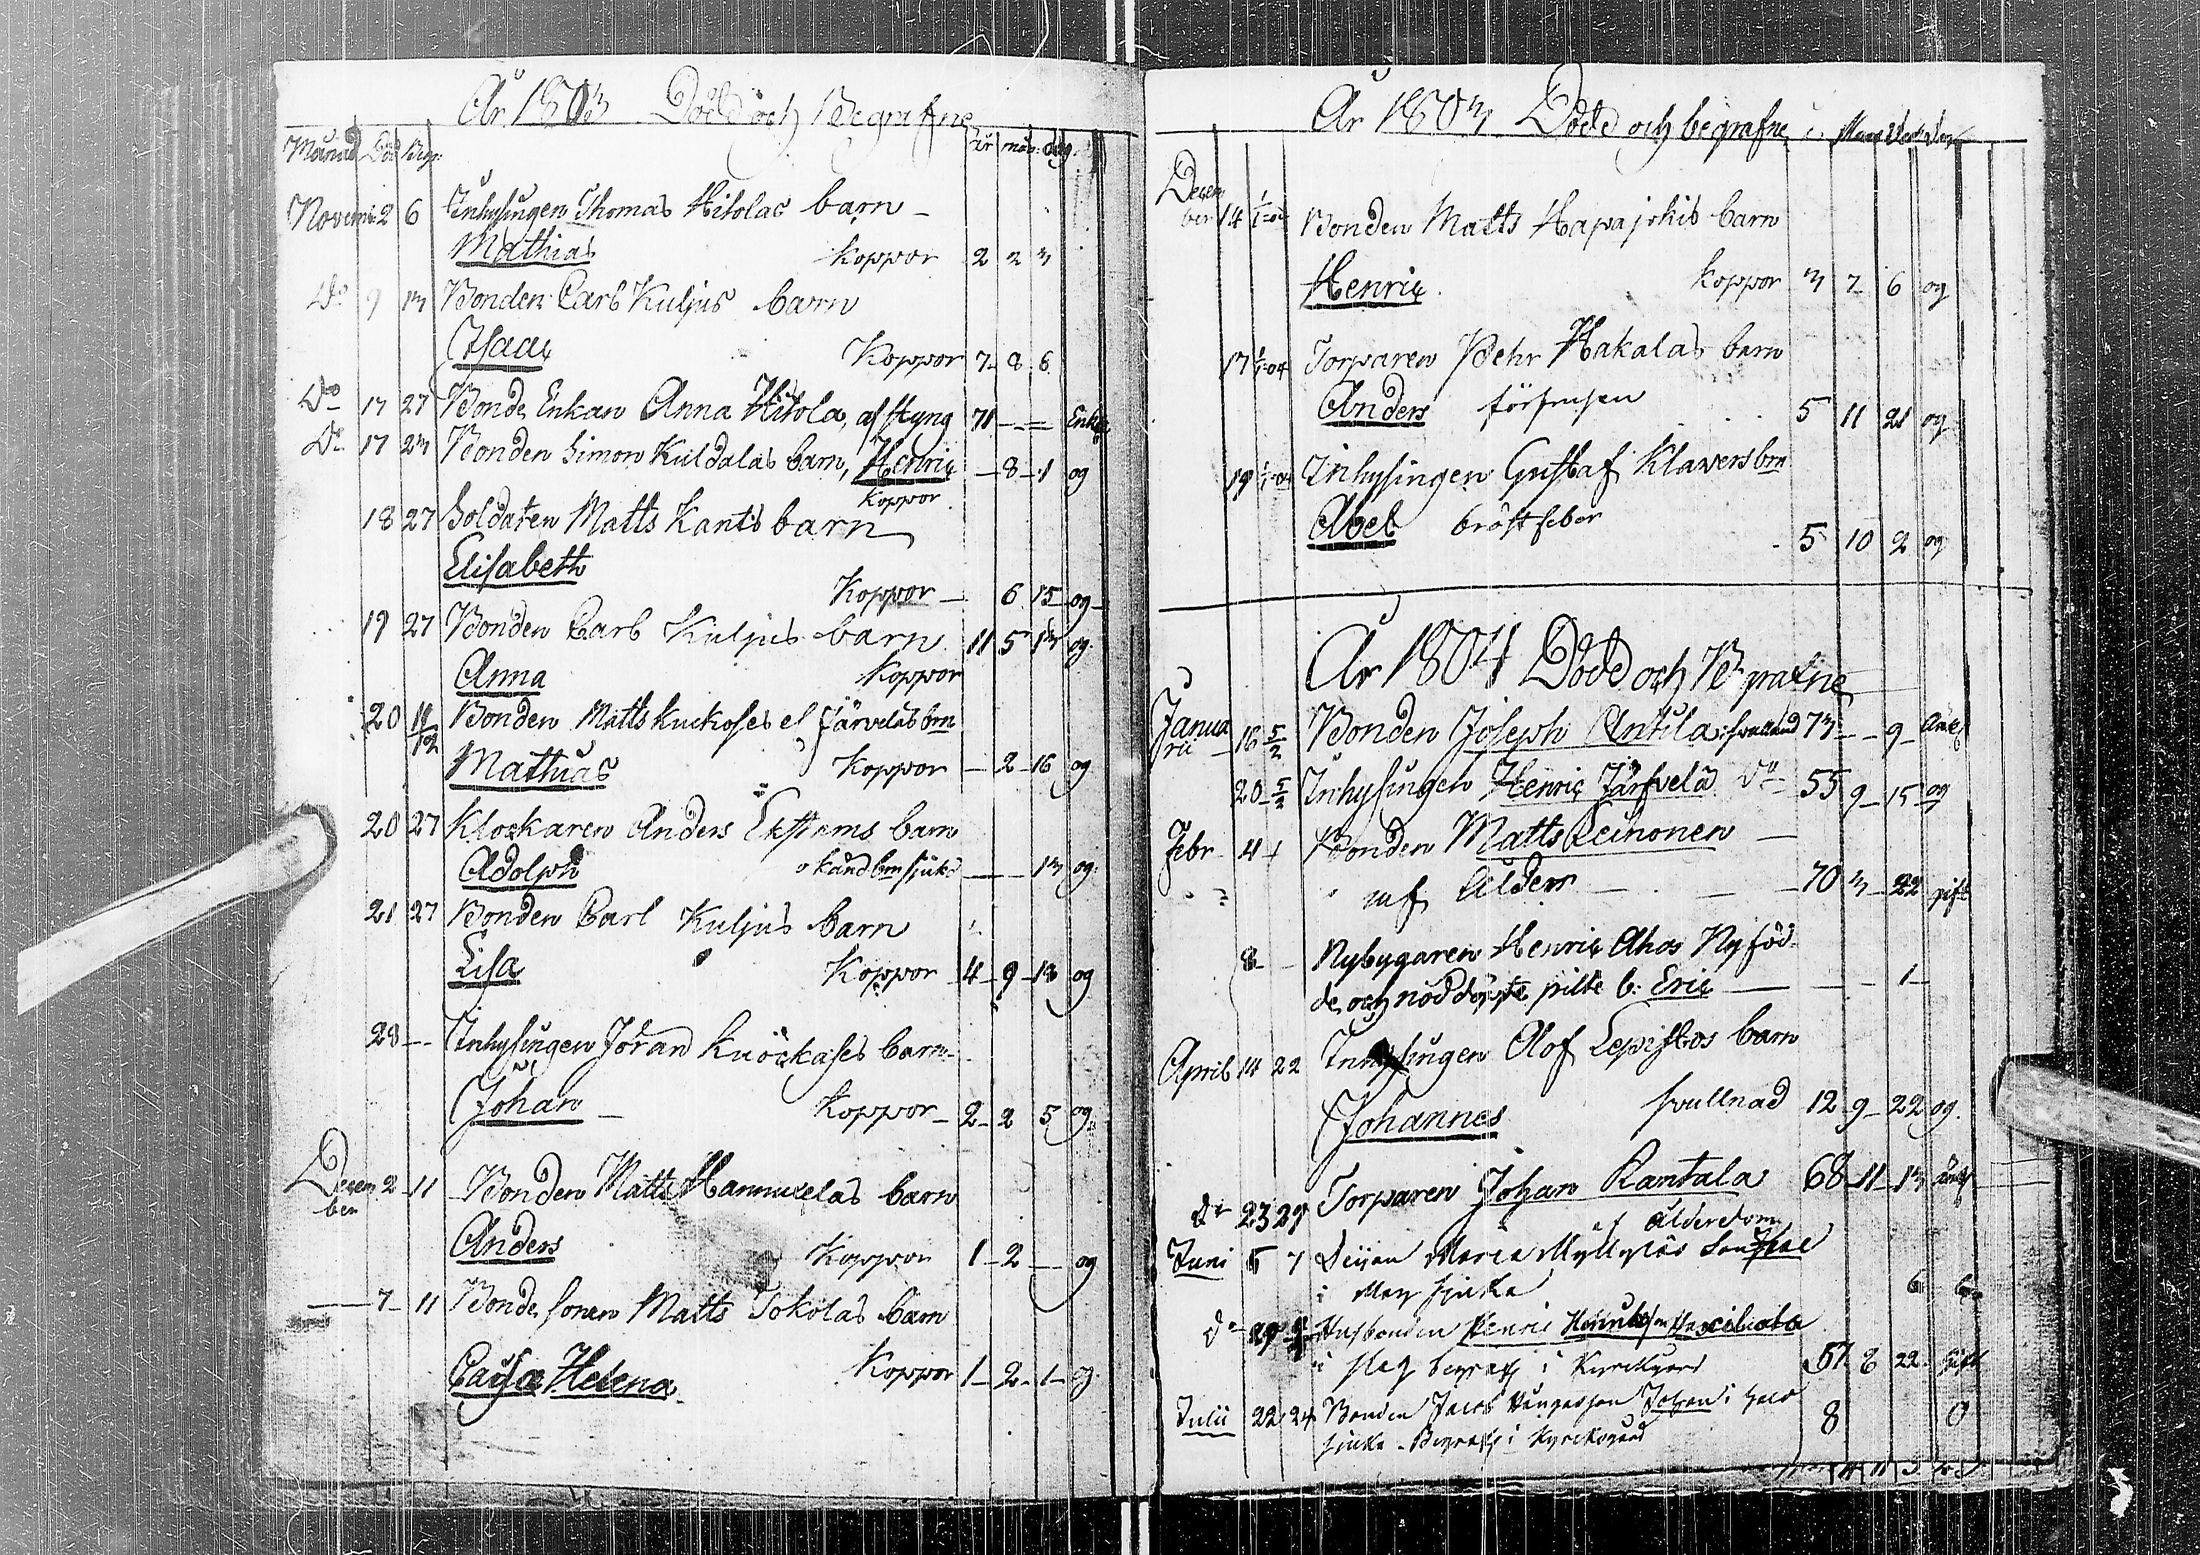 År 1803 Död och Begrafne
Månad Död Begr: År mån: dag.
Novemb 2 6 Inhysingen Thomas Hitolas barn
Mathias koppor 2 2 3
Do 9 13 Bonden Carl Kuljus barn
Isaac Koppor 7 8 6
Do 17 27 Bonde Enkan Anna Hitola, af styng 71 Enka
Do 17 27 Bonden Simon Kuldalas barn, Henric 8 1 og
koppor
18 27 Soldaten Matts Kants barn
Elisabeth Koppor 6 15 og
19 27 Bonden Carl Kuljus barn 11 5 13 og
Anna Koppor
20 Bonden Matts Kuckoses el Järvelas brn
Mathias Koppor 2 16 og
20 27 Klockaren Anders Ekstrems barn
Adolph okänd brnsjukd 13 og
21 27 Bonden Carl Kuljus barn
Lisa Koppor 4 9 18 og
28 Inhysingen Jöran Knöckases barn
Johan Koppor 2 2 5 og
Decem 2 11 Bonden Matts Hannuxelas barn
ber
Anders Koppor 1 2 og
7 11 Bonde sonen Matts Tokolas barn
Caisa Helena Koppor 1 2 1 og
År 1803 Död och begrafne
Decem
ber 14 Bonden Matts Hapajokis barn
Henric koppor 3 7 6 og
17 Torparen Pehr Hakalas barn
Anders 5 11 21 og
19 Inhysingen Gustaf Klawers brn
Abel bröstfeber 5 10 2 og
År 1804 Död och Begrafne
Janua
rii 16 5/2 Bonden Joseph Antila: svullnad 73 9
20 5/2 Inhysingen Henric Järfvelä Do 55 9 15 og
Febr 4 Bonden Matts Leinonen
af Ålderd 70 3 22 gift
8 Nybygaren Henric Ahos Nyföd-
de och nöddöpte pilte b: Eric 1
April 14 22 Inhysingen Olof Lepistos barn
Johannes svullnad 12 9 22 og.
Do 23 29 Torparen Johan Rantala 68 11 13
af ålderdom
Juni 5 7 Maria Myllyläs Son
i Mag sjuka 6
Do 29 Husbonden Henric
i slag begrafs i Kyrkogård 57 8 22 Gift
Julii 22 24 Bonden Jacob Johan i
sjuka Begrafs i Kyrkogård 8 O